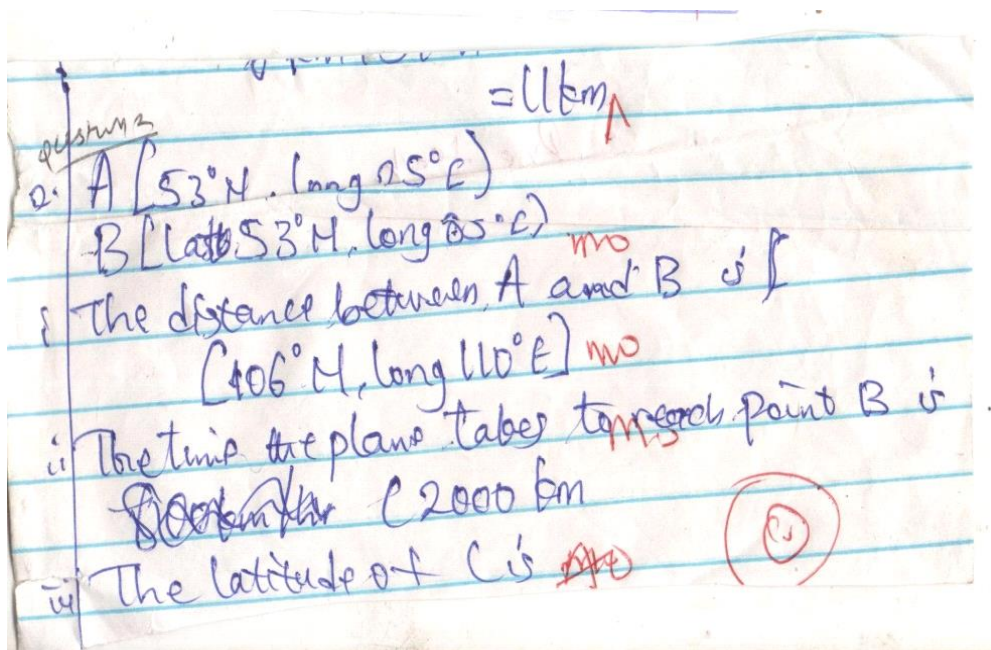 = 11 km
Question 2
2. A [53°N, long 25°E)
B [latt 53°N, long 85°E) m0
i The distance between A and B is [
[106°N, long 110°E] m0
ii The time the plane takes to reach point B is
(2000 km
iii The latitude of C is m0